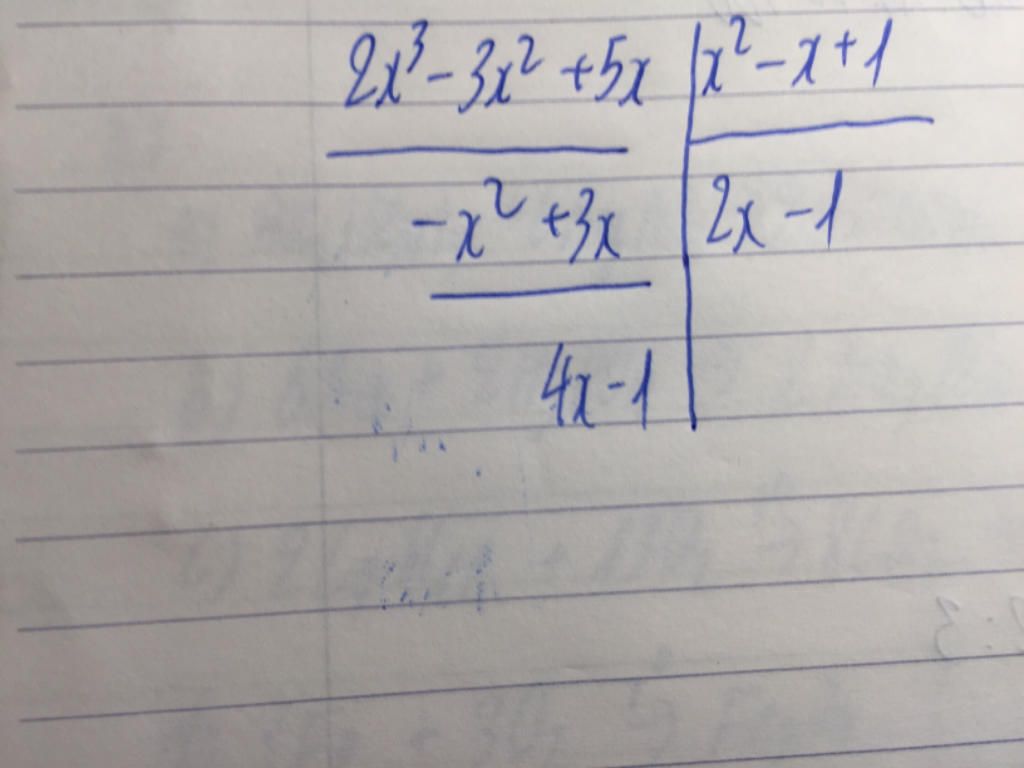 2x³ - 3x² + 5x | x² - x + 1
-x² + 3x | 2x - 1
4x - 1